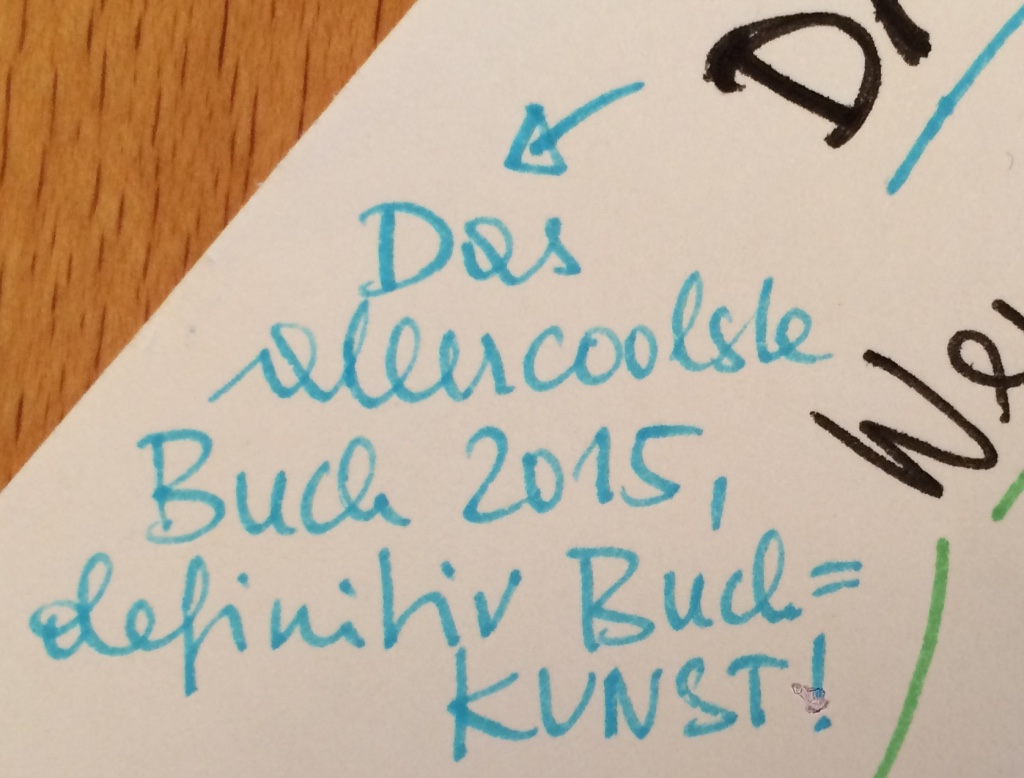 Das
allercoolste
Buch 2015,
definitiv Buch=
KUNST!